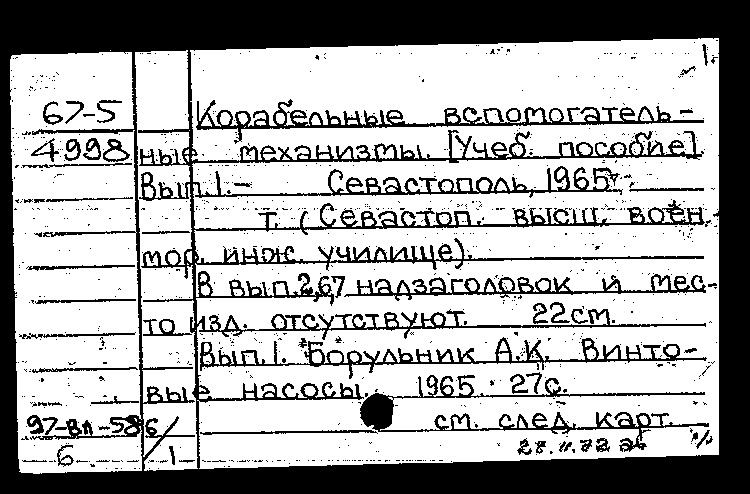 1.
67-5 Корабельные вспомогатель-
4998 ные механизмы. [Учеб. пособие]
Вып.1.- Севастополь, 1965-
т. (Севастоп. высш. воен.
мор. инж. училище).
В вып.2,67 надзаголовок и мес-
то изд. отсутствуют. 22см.
Вып.1. Борульник А.К. Винто-
вые насосы. 1965. 27с.
97-вл-586/ см. след. карт.
6 1